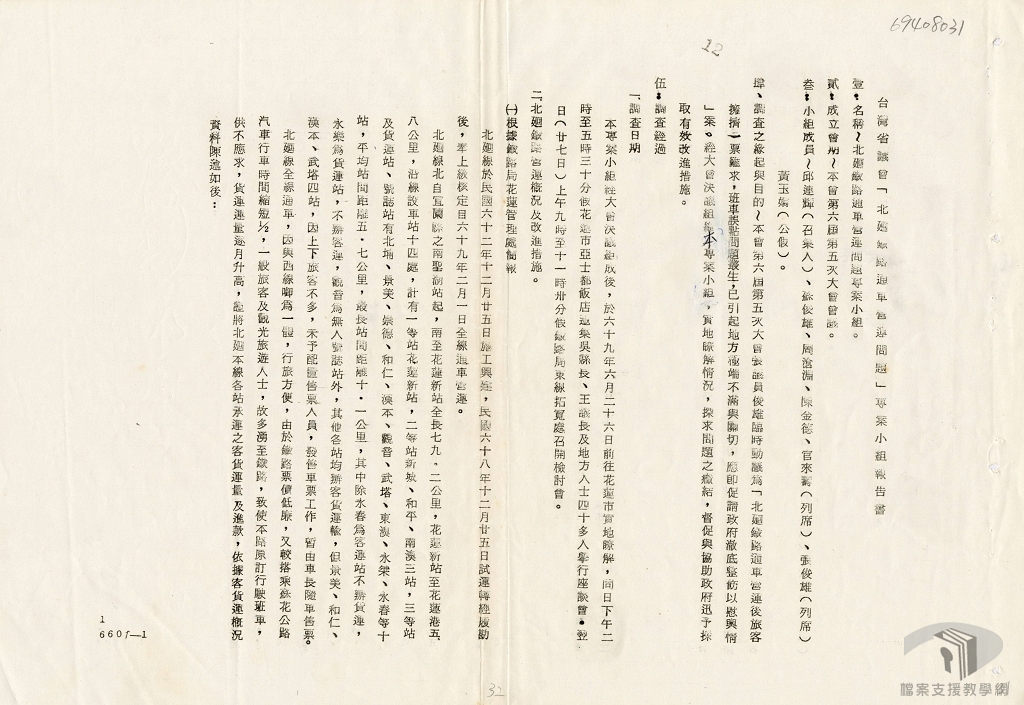 69408031
12
台灣省議會「北迴鐵路通車營運問題」專案小組報告書
壹、名稱~北迴鐵路通車營運問題專案小組。
貳、成立會期~本會第六屆第五次大會會議。
叁、小組成員~邱連輝(召集人)、蘇俊雄、周滄淵、陳金德、官來壽(列席)、張俊雄(列席)
黃玉嬌(公假)。
肆、調查之緣起與目的~本會第六屆第五次大會張議員俊雄臨時動議為「北迴鐵路通車營運後旅客
擁擠一票難求,班車誤點問題叢生,已引起地方極端不滿與關切,應即促請政府澈底整飭以慰輿情
」案。經大會決議組織本專案小組,實地瞭解情況,探求問題之癥結,督促與協助政府迅予採
取有效改進措施。
伍、調查經過
一、調查日期
本專案小組經大會決議組成後,於六十九年六月二十六日前往花蓮市實地瞭解,同日下午二
時至五時三十分假花蓮市亞士都飯店邀集吳縣長、王議長及地方人士四十多人舉行座談會。翌
日(廿七日)上午九時至十一時卅分假鐵路局東線拓寬處召開檢討會。
二、北迴鐵路營運概況及改進措施。
㈠根據鐵路局花蓮管理處簡報
北迴線於民國六十二年十二月廿五日施工興建,民國六十八年十二月廿五日試運轉經履勘
後,奉上級核定自六十九年二月一日全線通車營運。
北迴線北自宜蘭縣之南聖湖站起,南至花蓮新站全長七九.二公里,花蓮新站至花蓮港五.
八公里,沿線設車站十四處,計有一等站花蓮新站,二等站新城、和平、南澳三站,三等站
及貨運站、號誌站有北埔、景美、崇德、和仁、漢本、觀音、武塔、東澳、永樂、永春等十
站,平均站間距離五.七公里,最長站間距離十.一公里,其中除永春為客運站不辦貨運,
永樂為貨運站,不辦客運,觀音為無人號誌站外,其他各站均辦客貨運輸,但景美、和仁、
漢本、武塔四站,因上下旅客不多,未予配置售票人員,發售車票工作,暫由車長隨車售票。
北迴線全線通車,因與西線啣為一體,行旅方便,由於鐵路票價低廉,又較搭乘蘇花公路
汽車行車時間縮短½,一般旅客及觀光旅遊人士,故多湧至鐵路,致使本路原訂行駛班車,
供不應求,貨運運量逐月升高,謹將北迴本線各站承運之客貨運量及進款,依據客貨運概況
資料陳述如後:
1
660f—1
32
檔案支援教學網